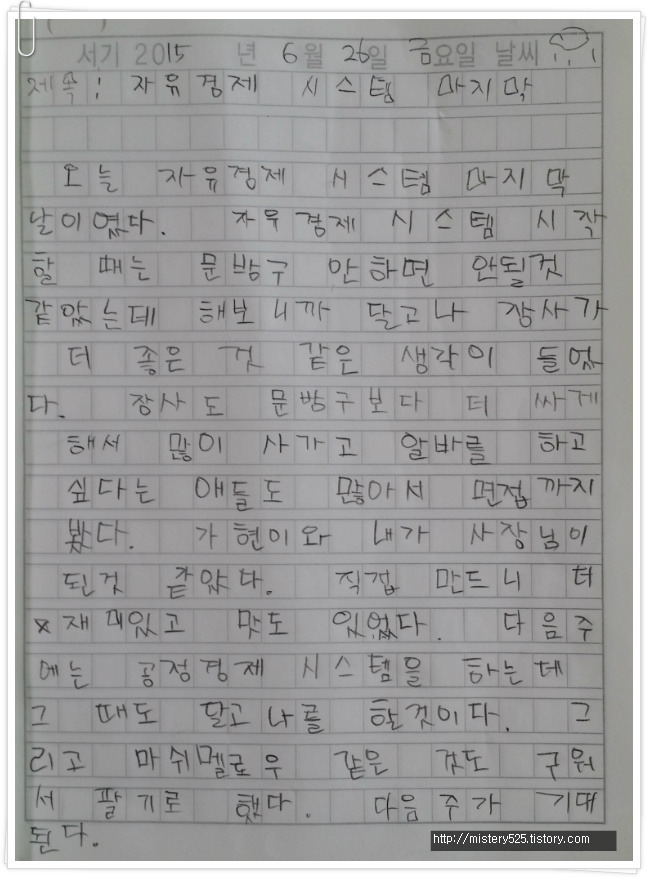 서기 2015 년 6월 26일 금요일 날씨
제목! 자유경제 시스템 마지막
오늘 자유경제 시스템 마지막
날이였다. 자유경제 시스템 시작
할 때는 문방구 안하면 안될것
같았는데 해보니까 달고나 장사가
더 좋은 것 같은 생각이 들었
다. 장사도 문방구보다 더 싸게
해서 많이 사가고 알바를 하고
싶다는 애들도 많아서 면접까지
봤다. 가현이와 내가 사장님이
된것 같았다. 직접 만드니 더
재미있고 맛도 있었다. 다음주
에는 공정경제 시스템을 하는데
그 때도 달고나를 할것이다. 그
리고 마쉬멜로우 같은 것도 구워
서 팔기로 했다. 다음주가 기대
된다.
http://mistery525.tistory.com